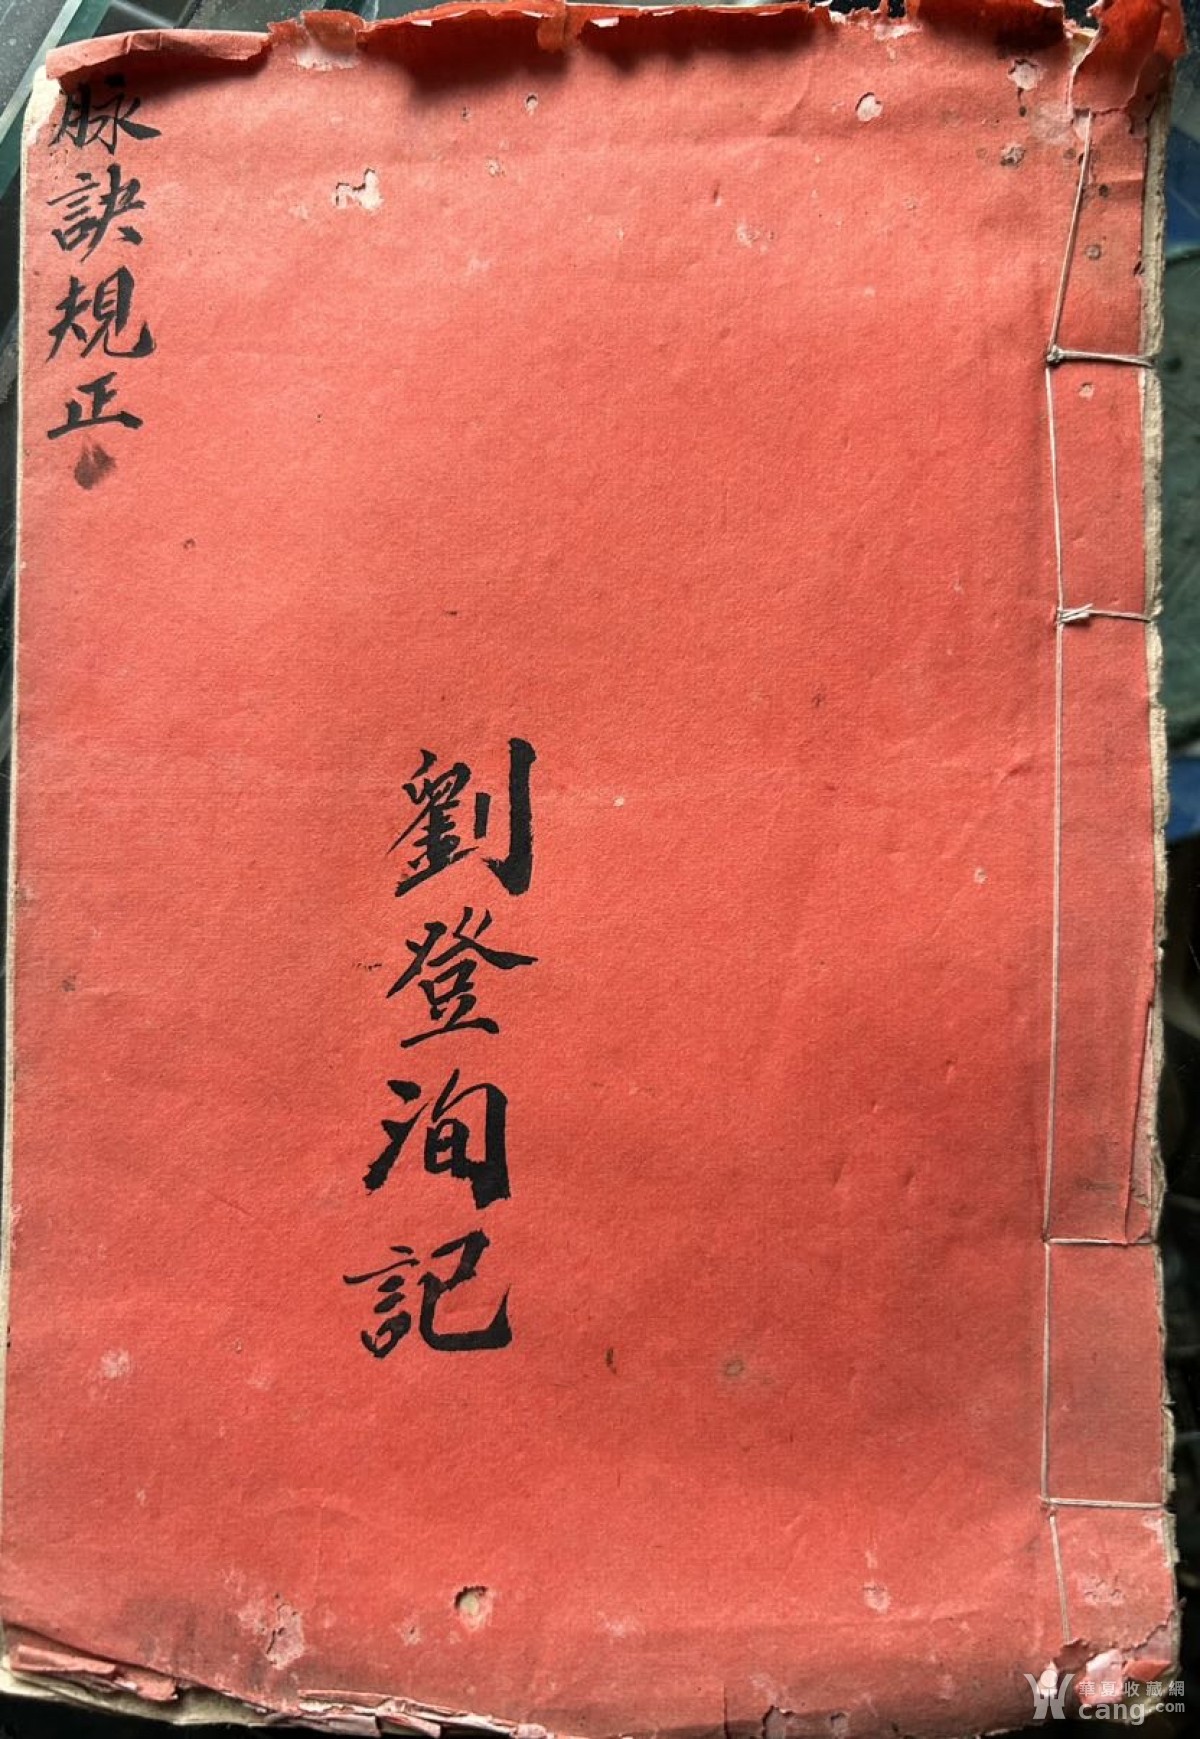 脉訣規正
劉登洵記
華夏收藏網
cang.com